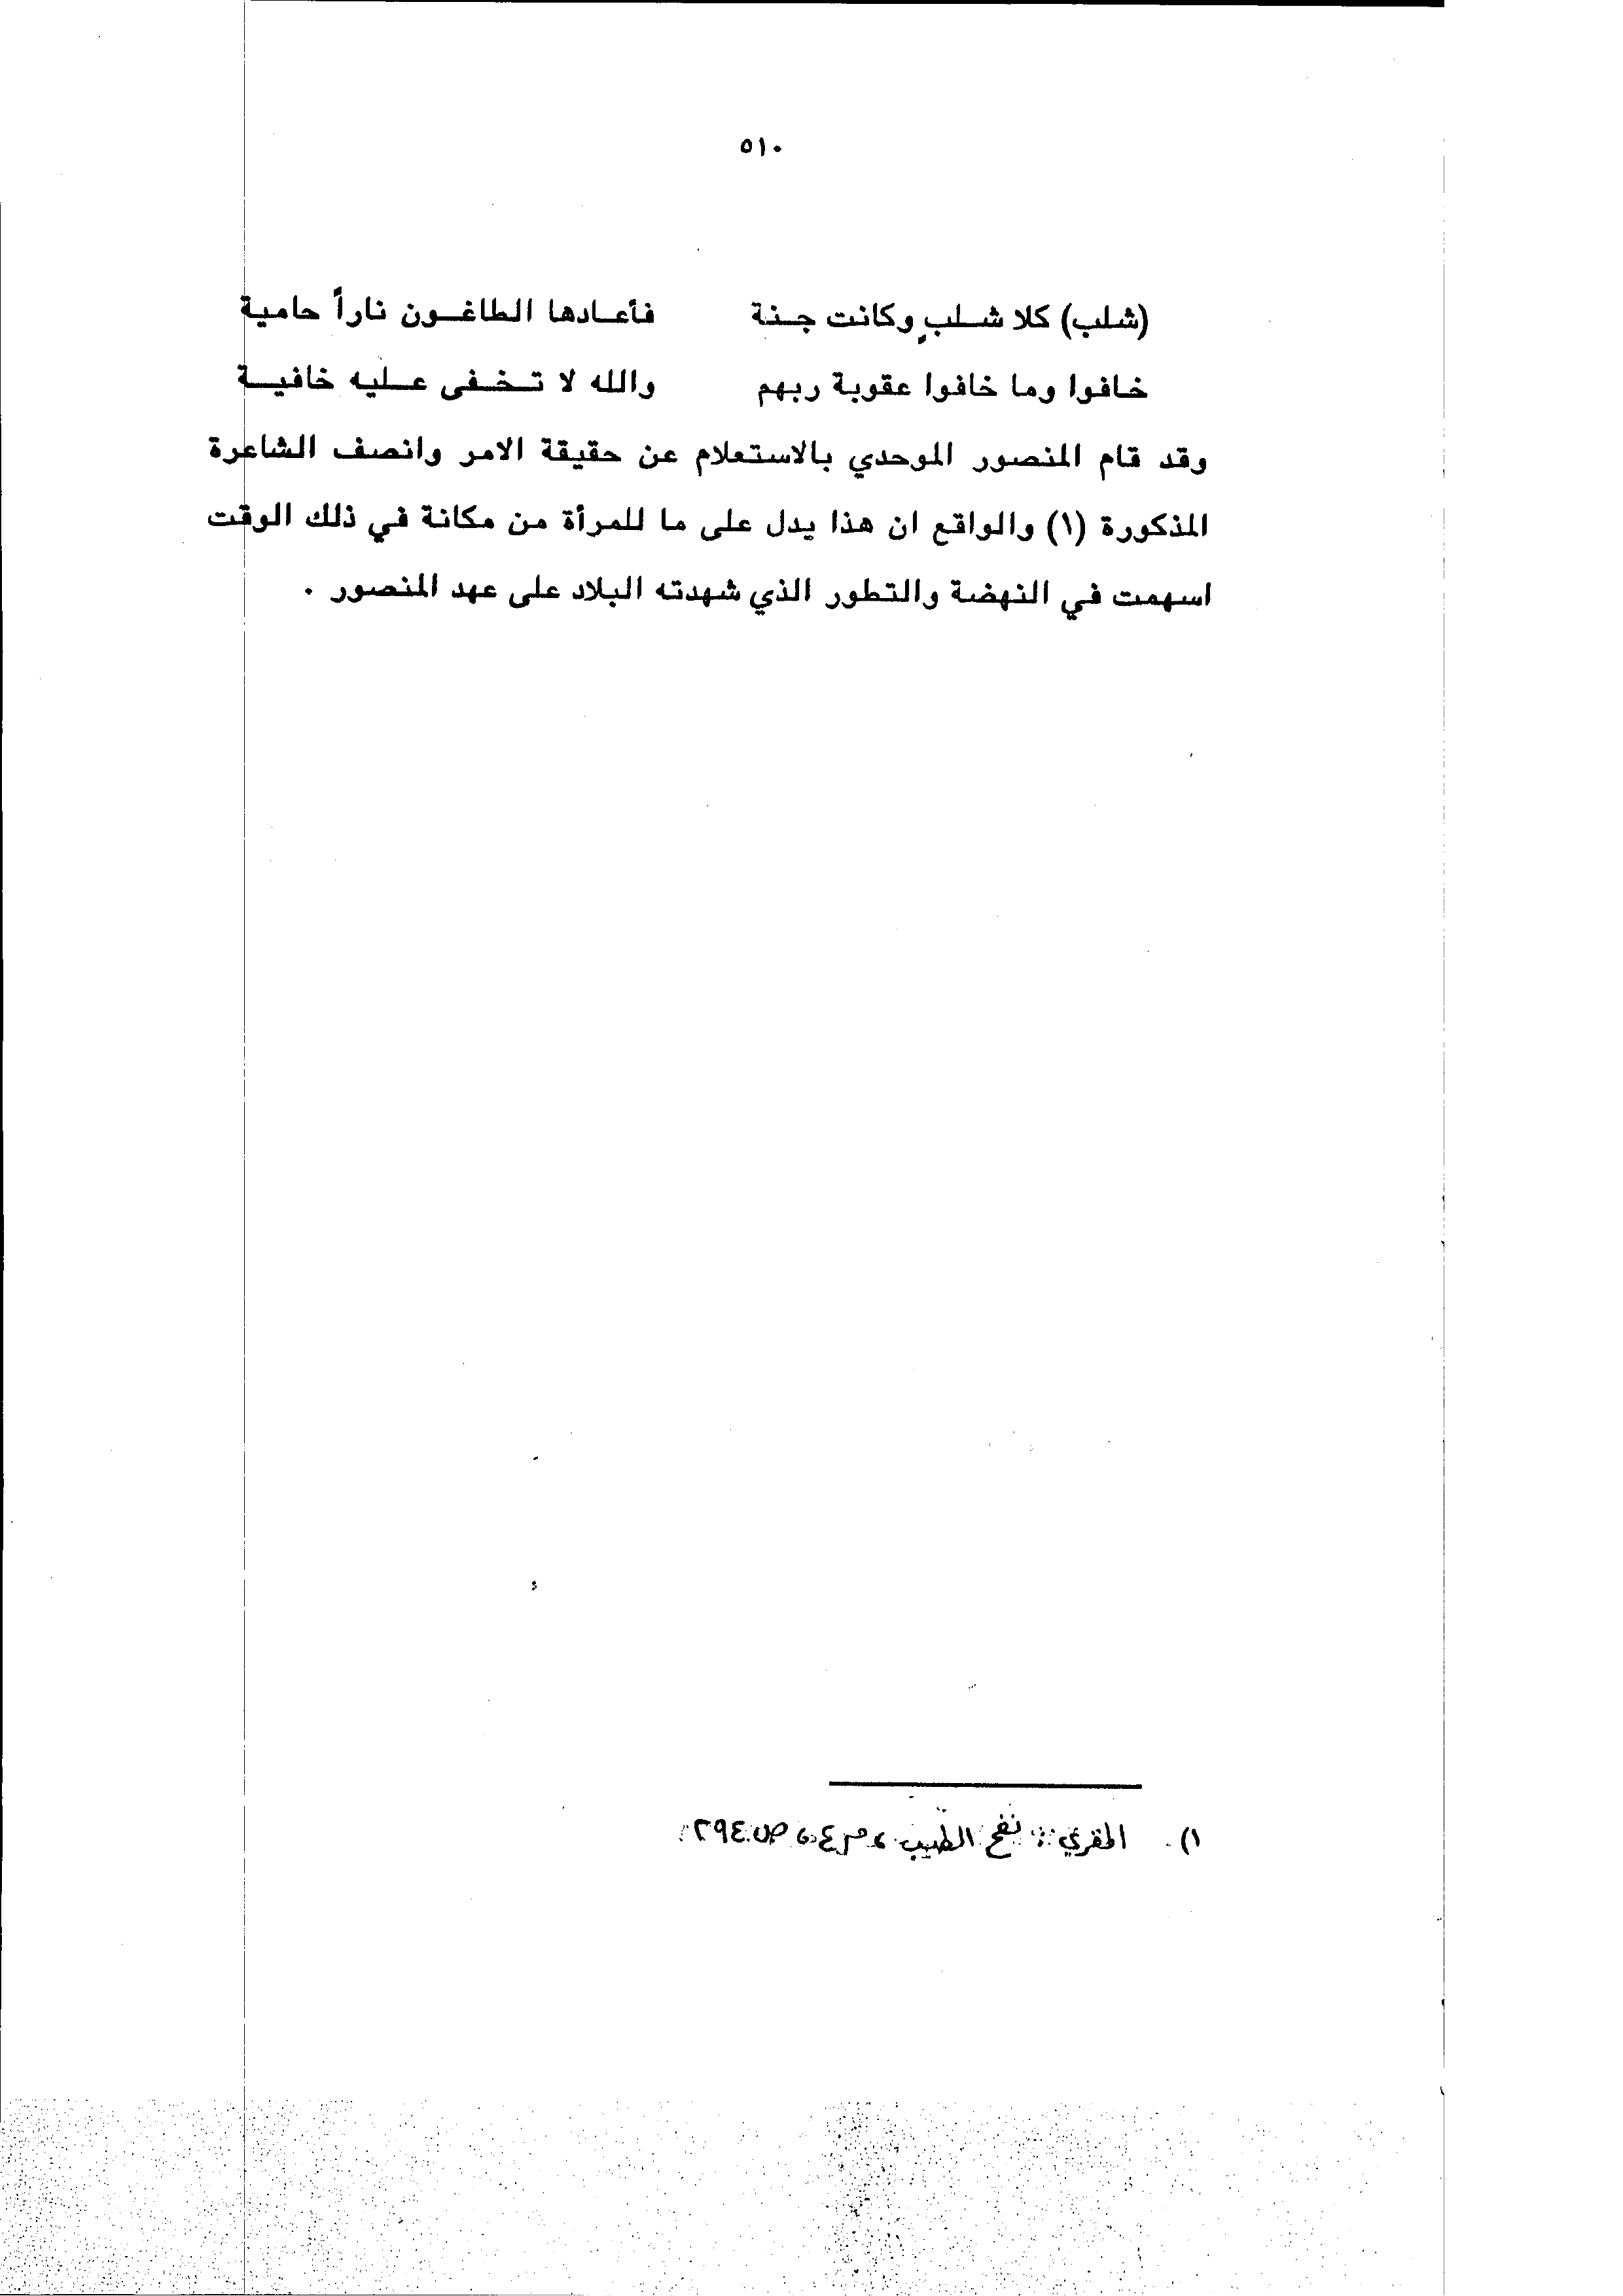 ٥١٠
(شلب) كلا شلبٍ وكانت جنة فأعادها الطاغون ناراً حامية
خافوا وما خافوا عقوبة ربهم والله لا تخفى عليه خافية
وقد قام المنصور الموحدي بالاستعلام عن حقيقة الامر وانصف الشاعرة
المذكورة (١) والواقع ان هذا يدل على ما للمرأة من مكانة في ذلك الوقت
اسهمت في النهضة والتطور الذي شهدته البلاد على عهد المنصور .
١). المقري : نفح الطيب ، م ٤ ، ص ٢٩٤.